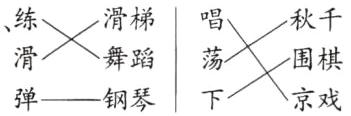 、练 滑梯 唱 秋千
滑 舞蹈 荡 围棋
弹 钢琴 下 京戏